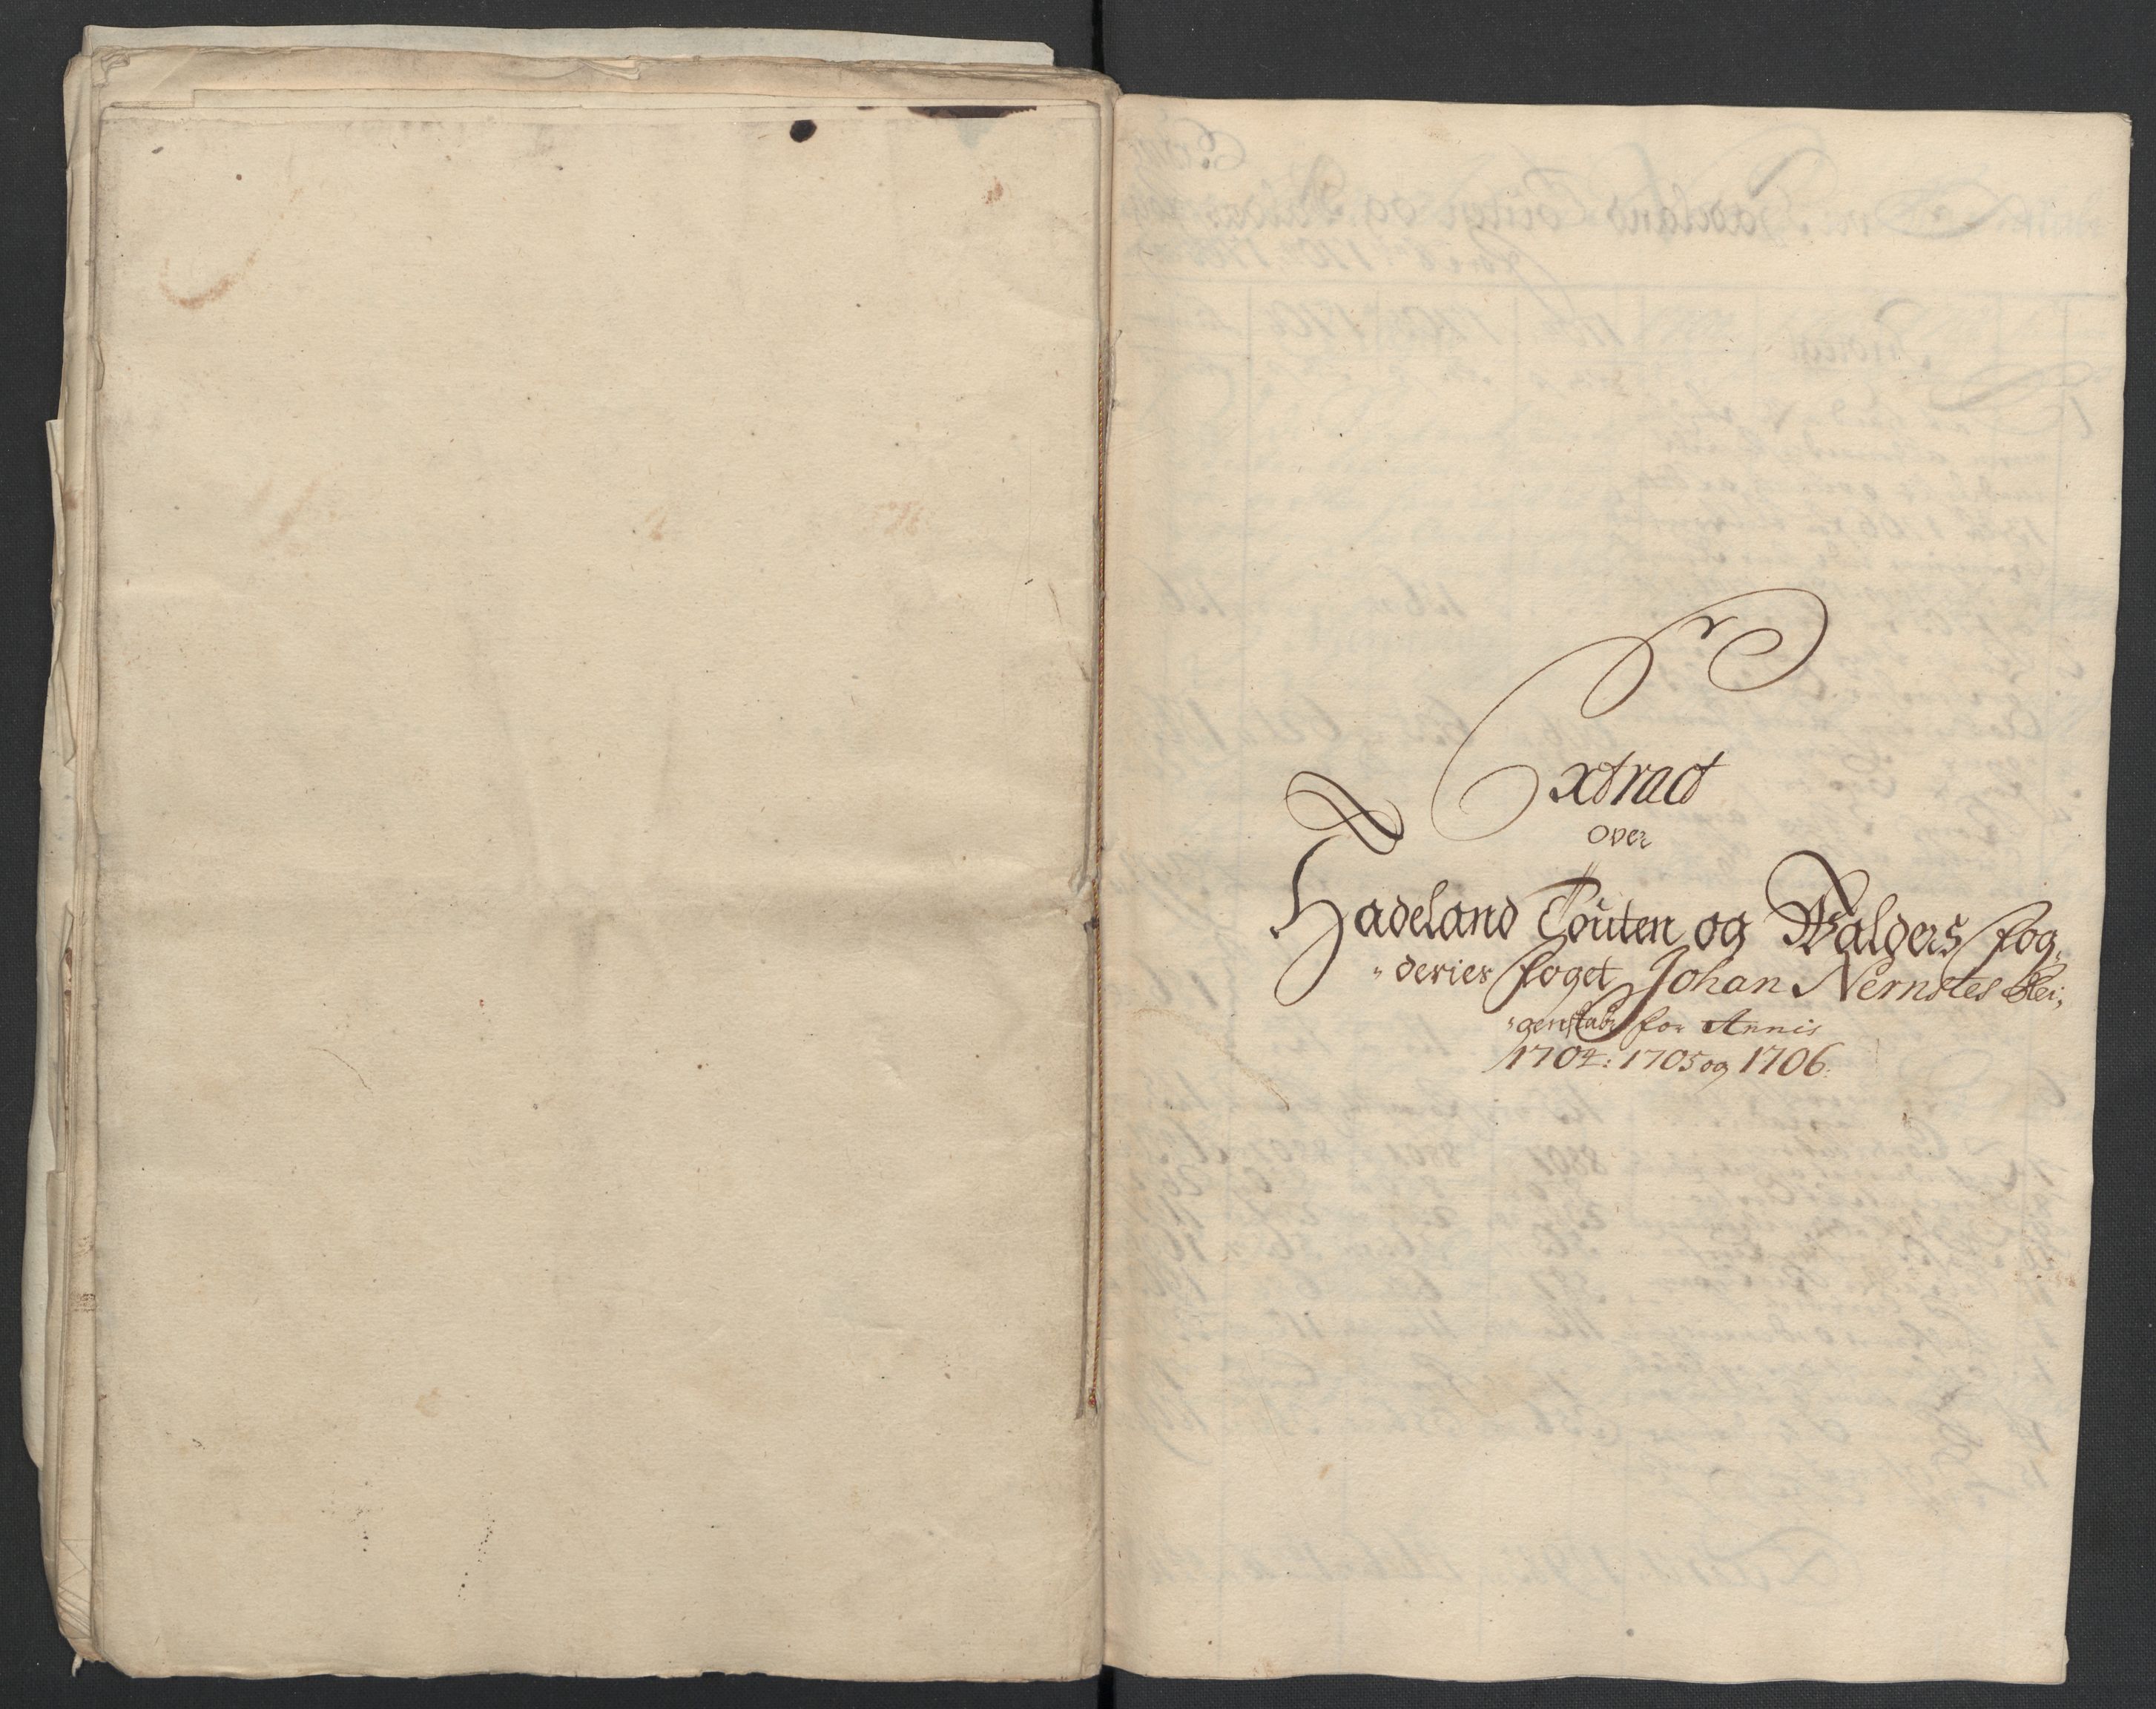 Extract
over
Hadeland Touten og Walders fog„
„deries foget Johan Nernstes Rei„
„genskab for Annis
1704: 1705 og 1706.